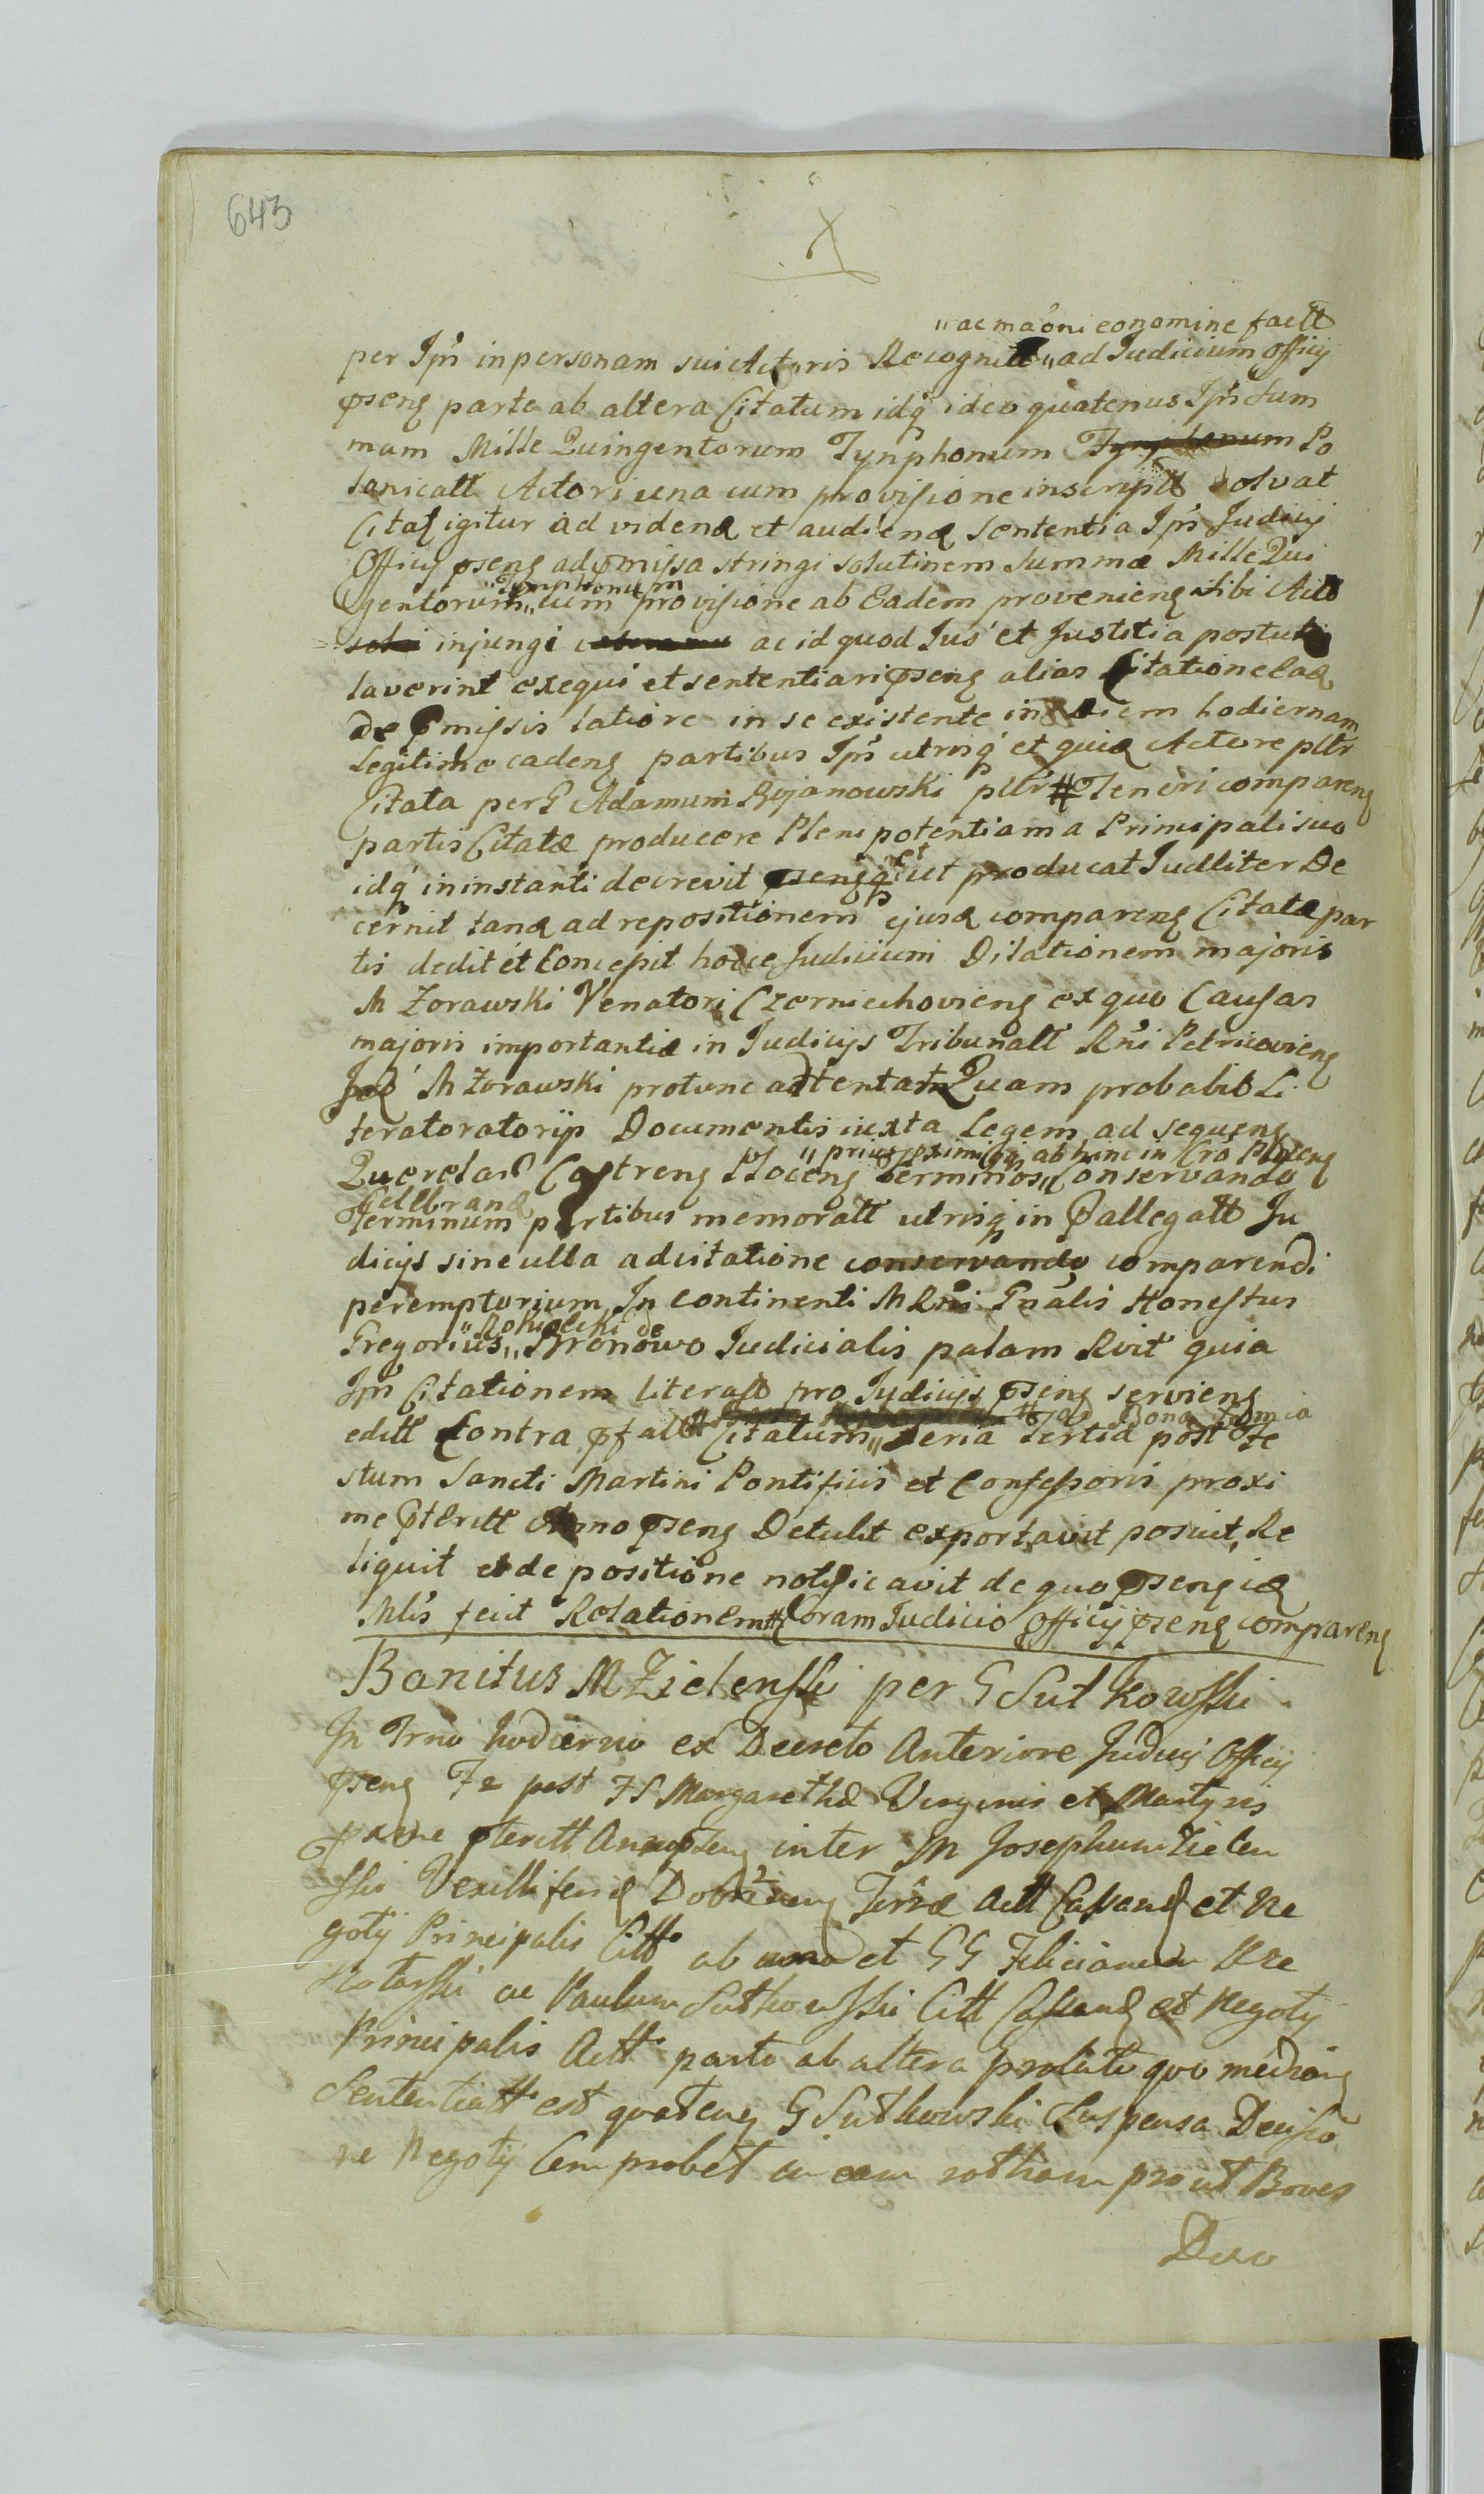 643
X
„ac maoni eonomine factt
per Ipń in personam sui Actoris Recognitt „ad Judicium Officij
pseng parte ab altera Citatum idq ideo quatenus Ipń Sum
mam Mille Quingentorum Tynphonum Tynphonum Po
lonicatt Actori una cum provisione inscriptt solvat
Citat igitur ad videnq et audienq Sententia Ipń Judicij
Officij pseng ad pmissa stringi solutinem Summæ Mille Qui
gentorum „Tymphonum„ cum provisione ab Eadem provenieng sibi Actt
solvi injungi ac id quod Jus et Justitia postu
laverint exequi et sententiari pseng alias Citatione Eaq
de pmissis latiore in se existente in Diem hodiernam
Legitime cadeng partibus Ipń utrisq et quiq Actore pltr
Citata per G Adamum Bojanowski pltr # Teneri compareng
partis Citatæ producere Plenipotentiam a Principali suo
idq in instanti decrevit psengq et ut producat Judliter De
cernit tanq ad repositionem ejusq compareng Citatæ par
tis dedit et Concessit hocce Judicium Dilationem majoris
M Zorawski Venatori Czerniechovieng ex quo Causas
majoris importantiæ in Judicijs Tribunalt Rni Petricovieng
M Zorawski protunc adtentat Quam probabit Li
teratoratorijs Documentis iuxta Legem ad sequeng
Querelar Castreng Ploceng terminos „prius proximiqq ab hinc in Cro Ploceng „Conservando
Cellbranq
Terminum partibus memoratt utrisq in pallegatt Ju
dicijs sine ulla adcitatione conservando comparendi
peremptorium In continenti M Rni Gnalis Honestus
Gregorius „Rokicki de„ Bronowo Judicialis palam Rvit quia
Ipń Citationem literatt pro Judicijs pseng servieng
editt Contra pfatt Citatum „ad Bona feria Tertia post Fe
stum Sancti Martini Pontificis et Confessoris proxi
me pteritt Anno pseng Detulit exportavit posuit Re
liquit et de positione notificavit de quo pseng iq
Mlis fecit Relationem # Coram Judicio Officij pseng compareng
Banitus M Zielenski per G Sutkowski
In Trno hodierno ex Decreto Anteriore Judicij Officij
pseng Fe post FS Margarethæ Virginis et Martyris
pxme pteritt Anno pseng inter M Josephum Zielen
ski Vexilliferuq Dobrzineng Terræ Actt Cassanq et Ne
gotij Principalis Citt ab una et GG Felicianum Kre
kotowski ac Paulum Sutkowski Citt Cassanq et Negotij
Principalis Actt parte ab altera prolato quo mediang
Sententiatt est quateng G Sutkowski Suspensa Decisio
ne Negotij Com probet in eam rotham prout Boves
Duo